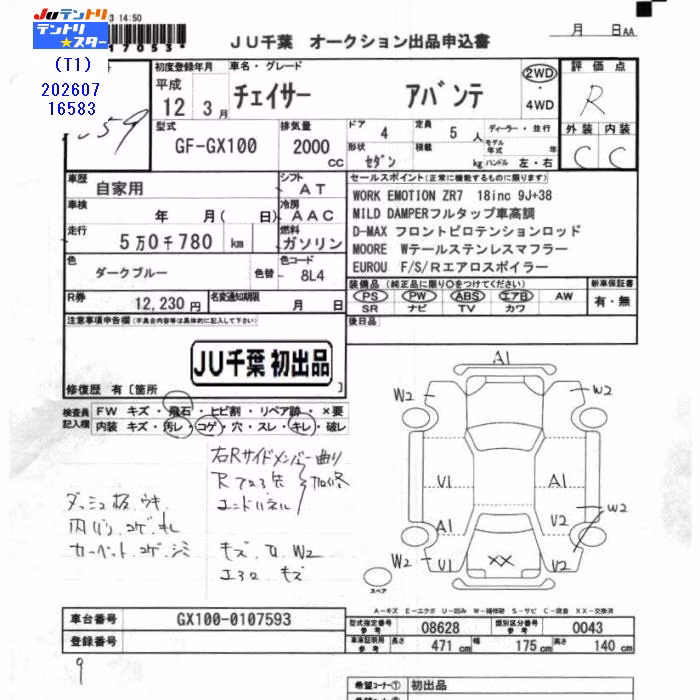 JUテントリ
テントリ★スター
3 14:50
17053*
(T1)
202607
16583
JU千葉 オークション出品申込書
月 日AA
初度登録年月
車名・グレード
評価点
平成
12 3月
チェイサー アバンテ
2WD
・
4WD
R
型式
GF-GX100
排気量
2000
CC
ドア 4
定員 5人
ディーラー・並行
モデル年式 年
形状 セダン
積載 kg
ハンドル 左・右
外装 内装
C C
車歴
自家用
シフト
AT
車検
年 月( 日)
冷房
AAC
走行
5万0千780 km
燃料
ガソリン
色
ダークブルー
色替
色コード
8L4
R券
12,230円
名変通知期限
月 日
セールスポイント(正常に機能するものに限ります)
WORK EMOTION ZR7 18inc 9J+38
MILD DAMPERフルタップ車高調
D-MAX フロントピロテンションロッド
MOORE Wテールステンレスマフラー
EUROU F/S/Rエアロスポイラー
装備品(純正品に限り○をつけてください)
新車保証書
PS PW ABS エアB AW
SR ナビ TV カワ
有・無
後日品
注意事項申告欄(不具合内容等は具体的に記入して下さい)
JU千葉 初出品
修復歴 有〔箇所 〕
検査員記入欄
FW キズ・飛石・ヒビ割・リペア跡・×要
内装 キズ・汚レ・コゲ・穴・スレ・キレ・破レ
右Rサイドメンバー曲り
Rフロア先
エンドパネル
加修
ダッシュ板、ウキ
内バリ、コゲ、キレ
カーペット、コゲ、シミ
キズ、U、W2
エアロ、キズ
A1
W2
W2
V1
A1
A1
V2
W2
W2
V1
XX
V2
スペア
A-キズ E-エクボ U-凹み W-補修跡 S-サビ C-腐食 XX-交換済
車台番号
GX100-0107593
登録番号
型式指定番号 参考
08628
類別区分番号 参考
0043
車体証明用 参考
長さ 471 cm
幅 175 cm
高さ 140 cm
9
希望コーナー① 初出品